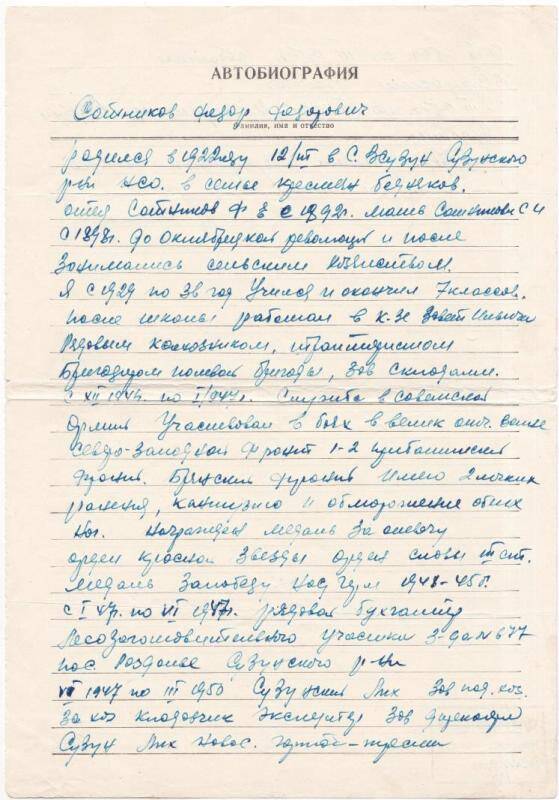 АВТОБИОГРАФИЯ
Сотников Федор Федорович
Фамилия, имя и отчество
родился в 1922 году 12/III в с. В Сузун Сузунского
р-на НСО. в семье крестьян бедняков.
отец Сотников Ф с 1892г. мать Сотникова С И
с 1898г. До октябрьской революции и после
занимались сельским хозяйством.
Я с 1929 по 38 год Учился и окончил 7 классов.
после школы работал в к-зе Завет Ильича
Рядовым колхозником, трактористом
Бригадиром полевой бригады, Зав складами.
с XII по I/1947г. Служба в советской
Армии Участвовал в боях в велик отч.
Северо-Западной Фронт 1-2 прибалтийский
Фронт. Брянский фронт Имею 2
ранения, контузию и обморожение обеих
ног. Награжден медаль За отвагу
орден красной Звезды орден славы III ст.
медаль За победу над
с I 47г. по VI 1947г. рядовой бухгалтер
Лесозаготовительного участка З-да № 677
пос Раздолье Сузунского р-на
VII 1947 по III 1950 Сузунский Лхх Зав под. хоз.
За хоз кладовчик Экспедитор Зав
Сузун Лхх Новос.